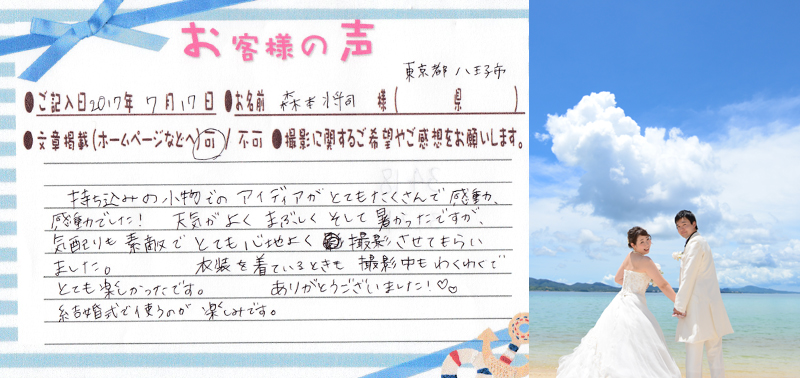 お客様の声
東京都 八王子市
●ご記入日2017年 7月17日 ●お名前 森本 将司 様( 県 )
●文章掲載(ホームページなどへ)可 / 不可 ●撮影に関するご希望やご感想をお願いします。
持ち込みの小物でのアイディアがとてもたくさんで感動、
感動でした! 天気がよく まぶしく そして 暑かったですが、
気配りも素敵で とても心地よく 撮影させてもらい
ました。 衣装を着ているときも 撮影中もわくわくで
とても楽しかったです。 ありがとうございました!♡♡
結婚式で使うのが 楽しみです。